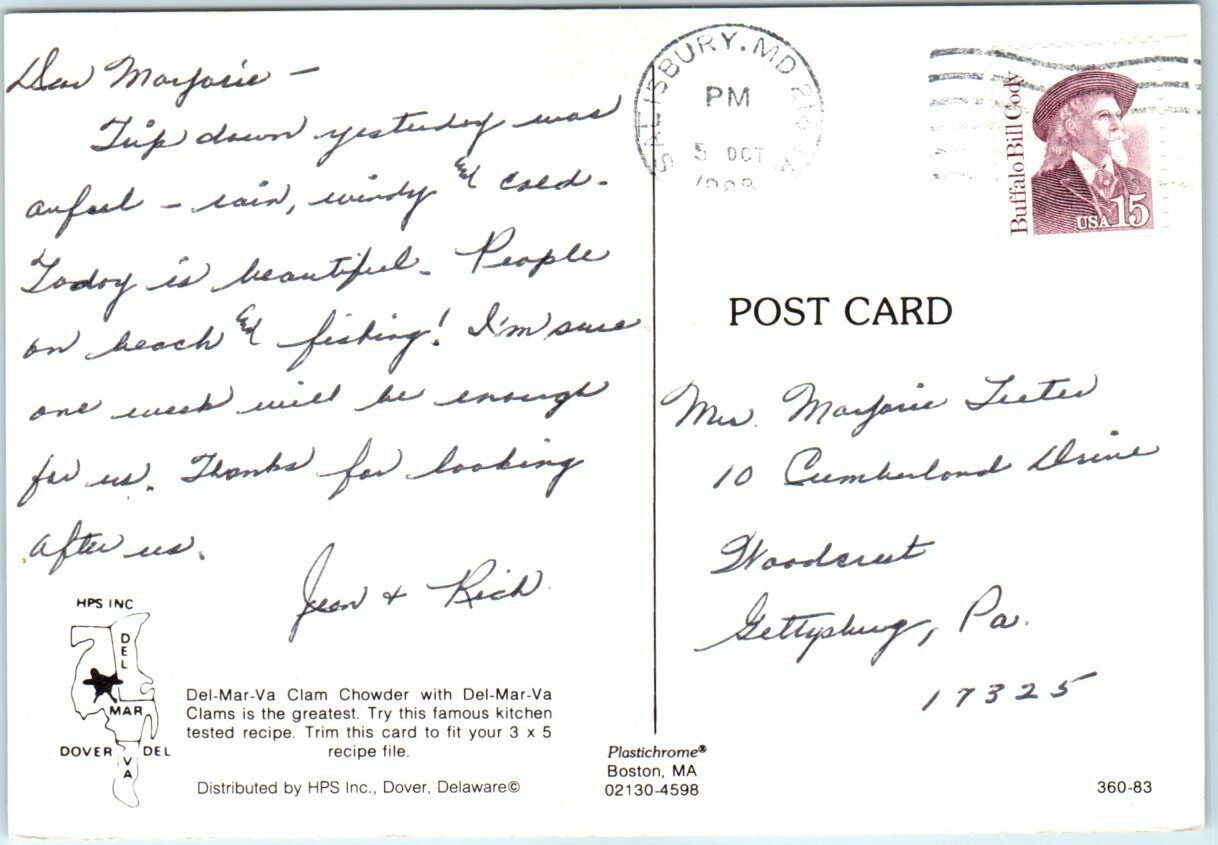 Dear Marjorie –
Trip down yesterday was
awful – rain, windy & cold.
Today is beautiful. People
on beach & fishing! I'm sure
one week will be enough
for us. Thanks for looking
after us.
Jean & Rich
HPS INC
DEL
MAR
VA
DOVER DEL
Del-Mar-Va Clam Chowder with Del-Mar-Va
Clams is the greatest. Try this famous kitchen
tested recipe. Trim this card to fit your 3 x 5
recipe file.
Distributed by HPS Inc., Dover, Delaware©
SALISBURY, MD
PM
5 OCT
Buffalo Bill Cody
USA 15
POST CARD
Mrs. Marjorie Teeter
10 Cumberland Drive
Woodcrest
Gettysburg, Pa.
17325
Plastichrome®
Boston, MA
02130-4598
360-83